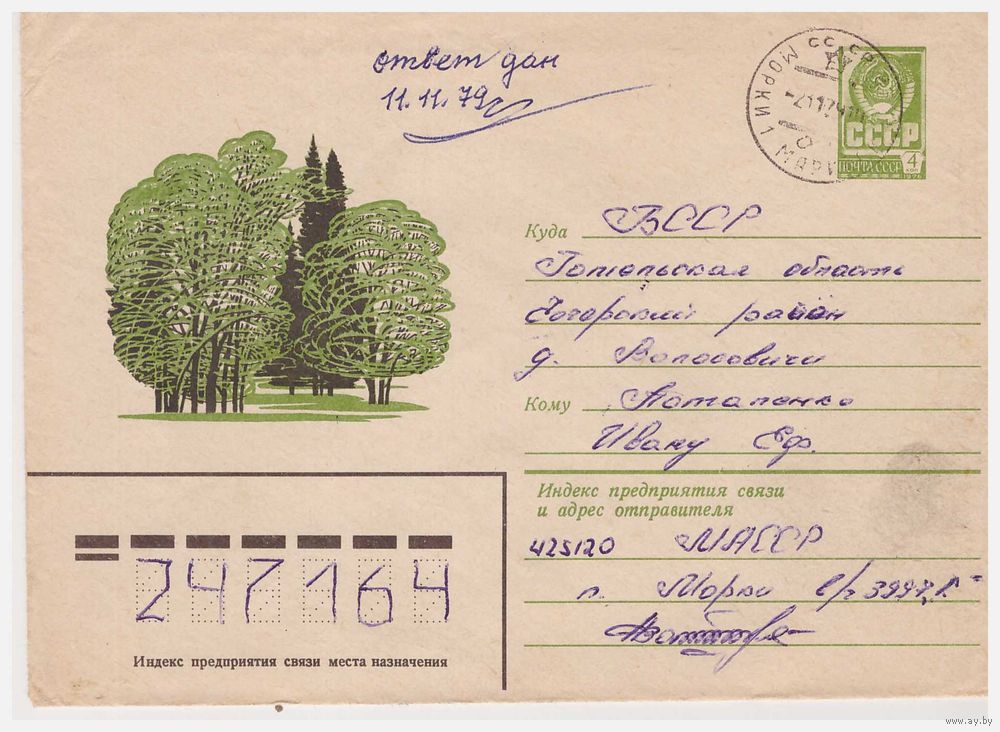 ответ дан
11.11.79
СССР
МОРКИ 1
СССР
ПОЧТА СССР
4
КОП
Куда БССР
Гомельская область
район
д. Волосовичи
Кому Потапенко
Ивану Еф.
Индекс предприятия связи
и адрес отправителя
425120 МАССР
п. Морки
247164
Индекс предприятия связи места назначения
www.ay.by